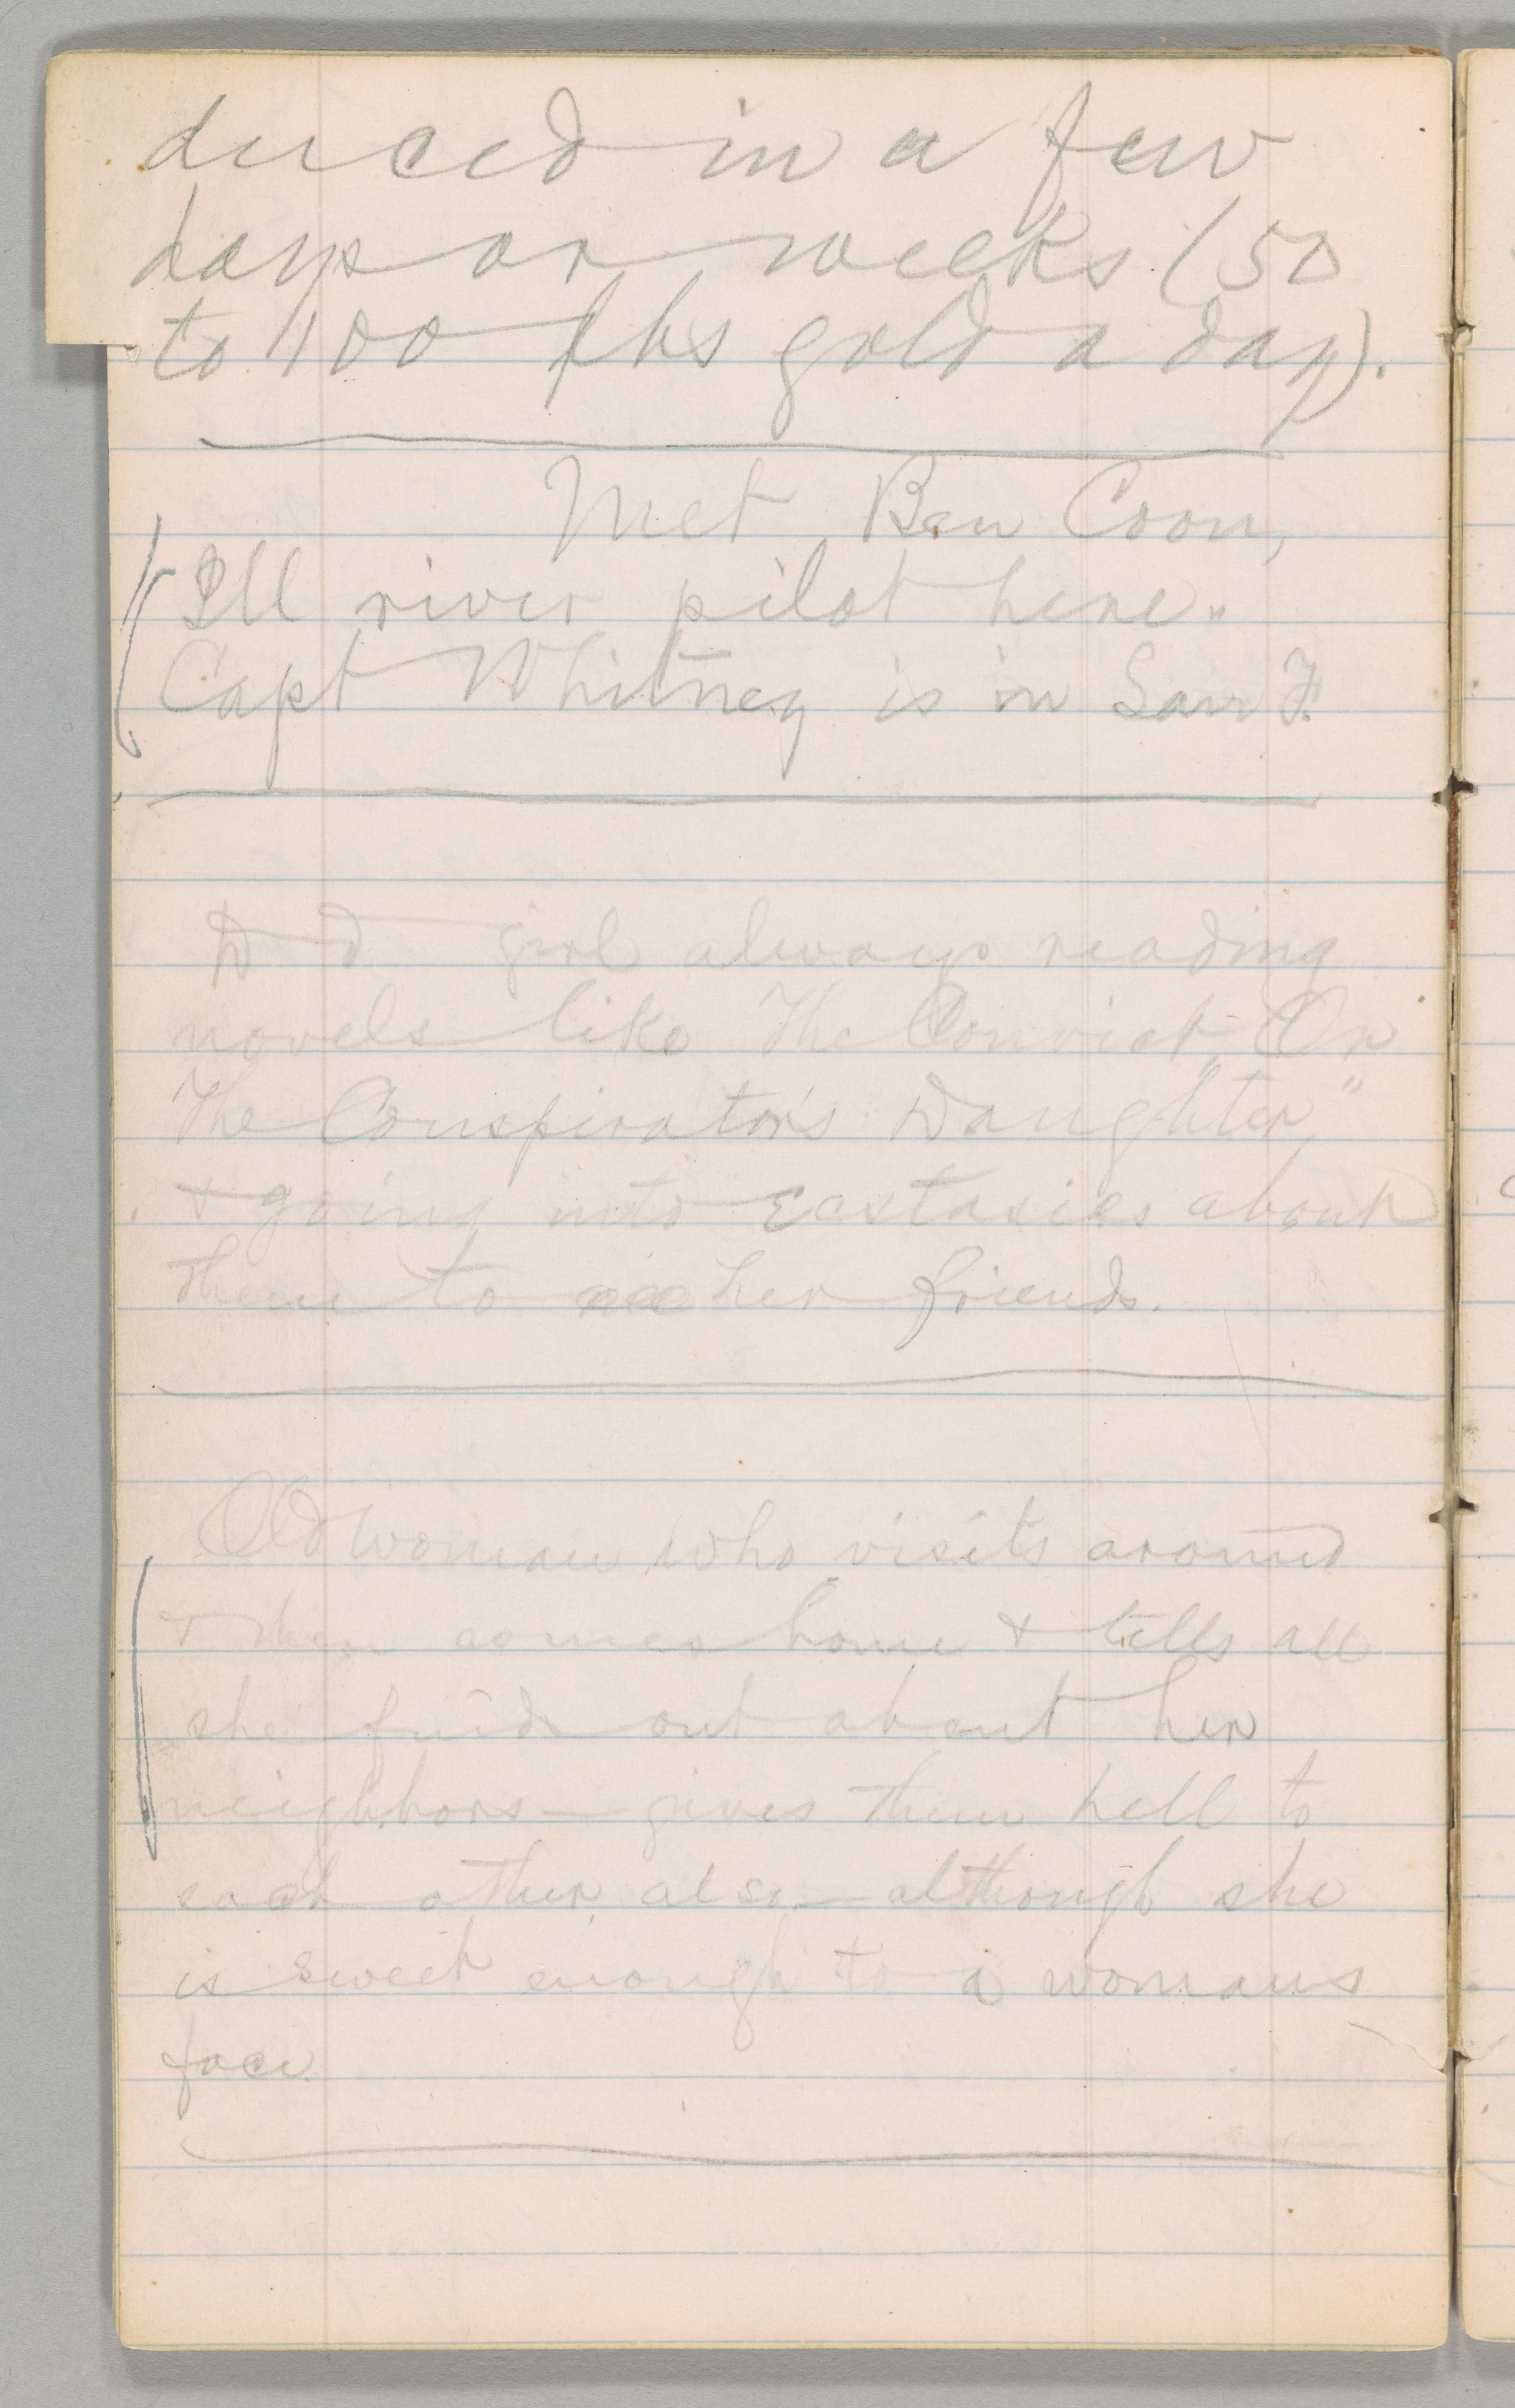 duced in a few
days or weeks (50
to 100 lbs gold a day).
Met Ben Coon,
Ill river pilot here.
Capt Whitney is in San F.
D—d girl always reading
novels like The Convict, Or
The Conspirator's Daughter,"
& going into Ecstasies about
them to her friends.
Old woman who visits around
& then comes home & tells all
she finds out about her
neighbors—gives them hell to
each other also—although she
is sweet enough to a womans
face.